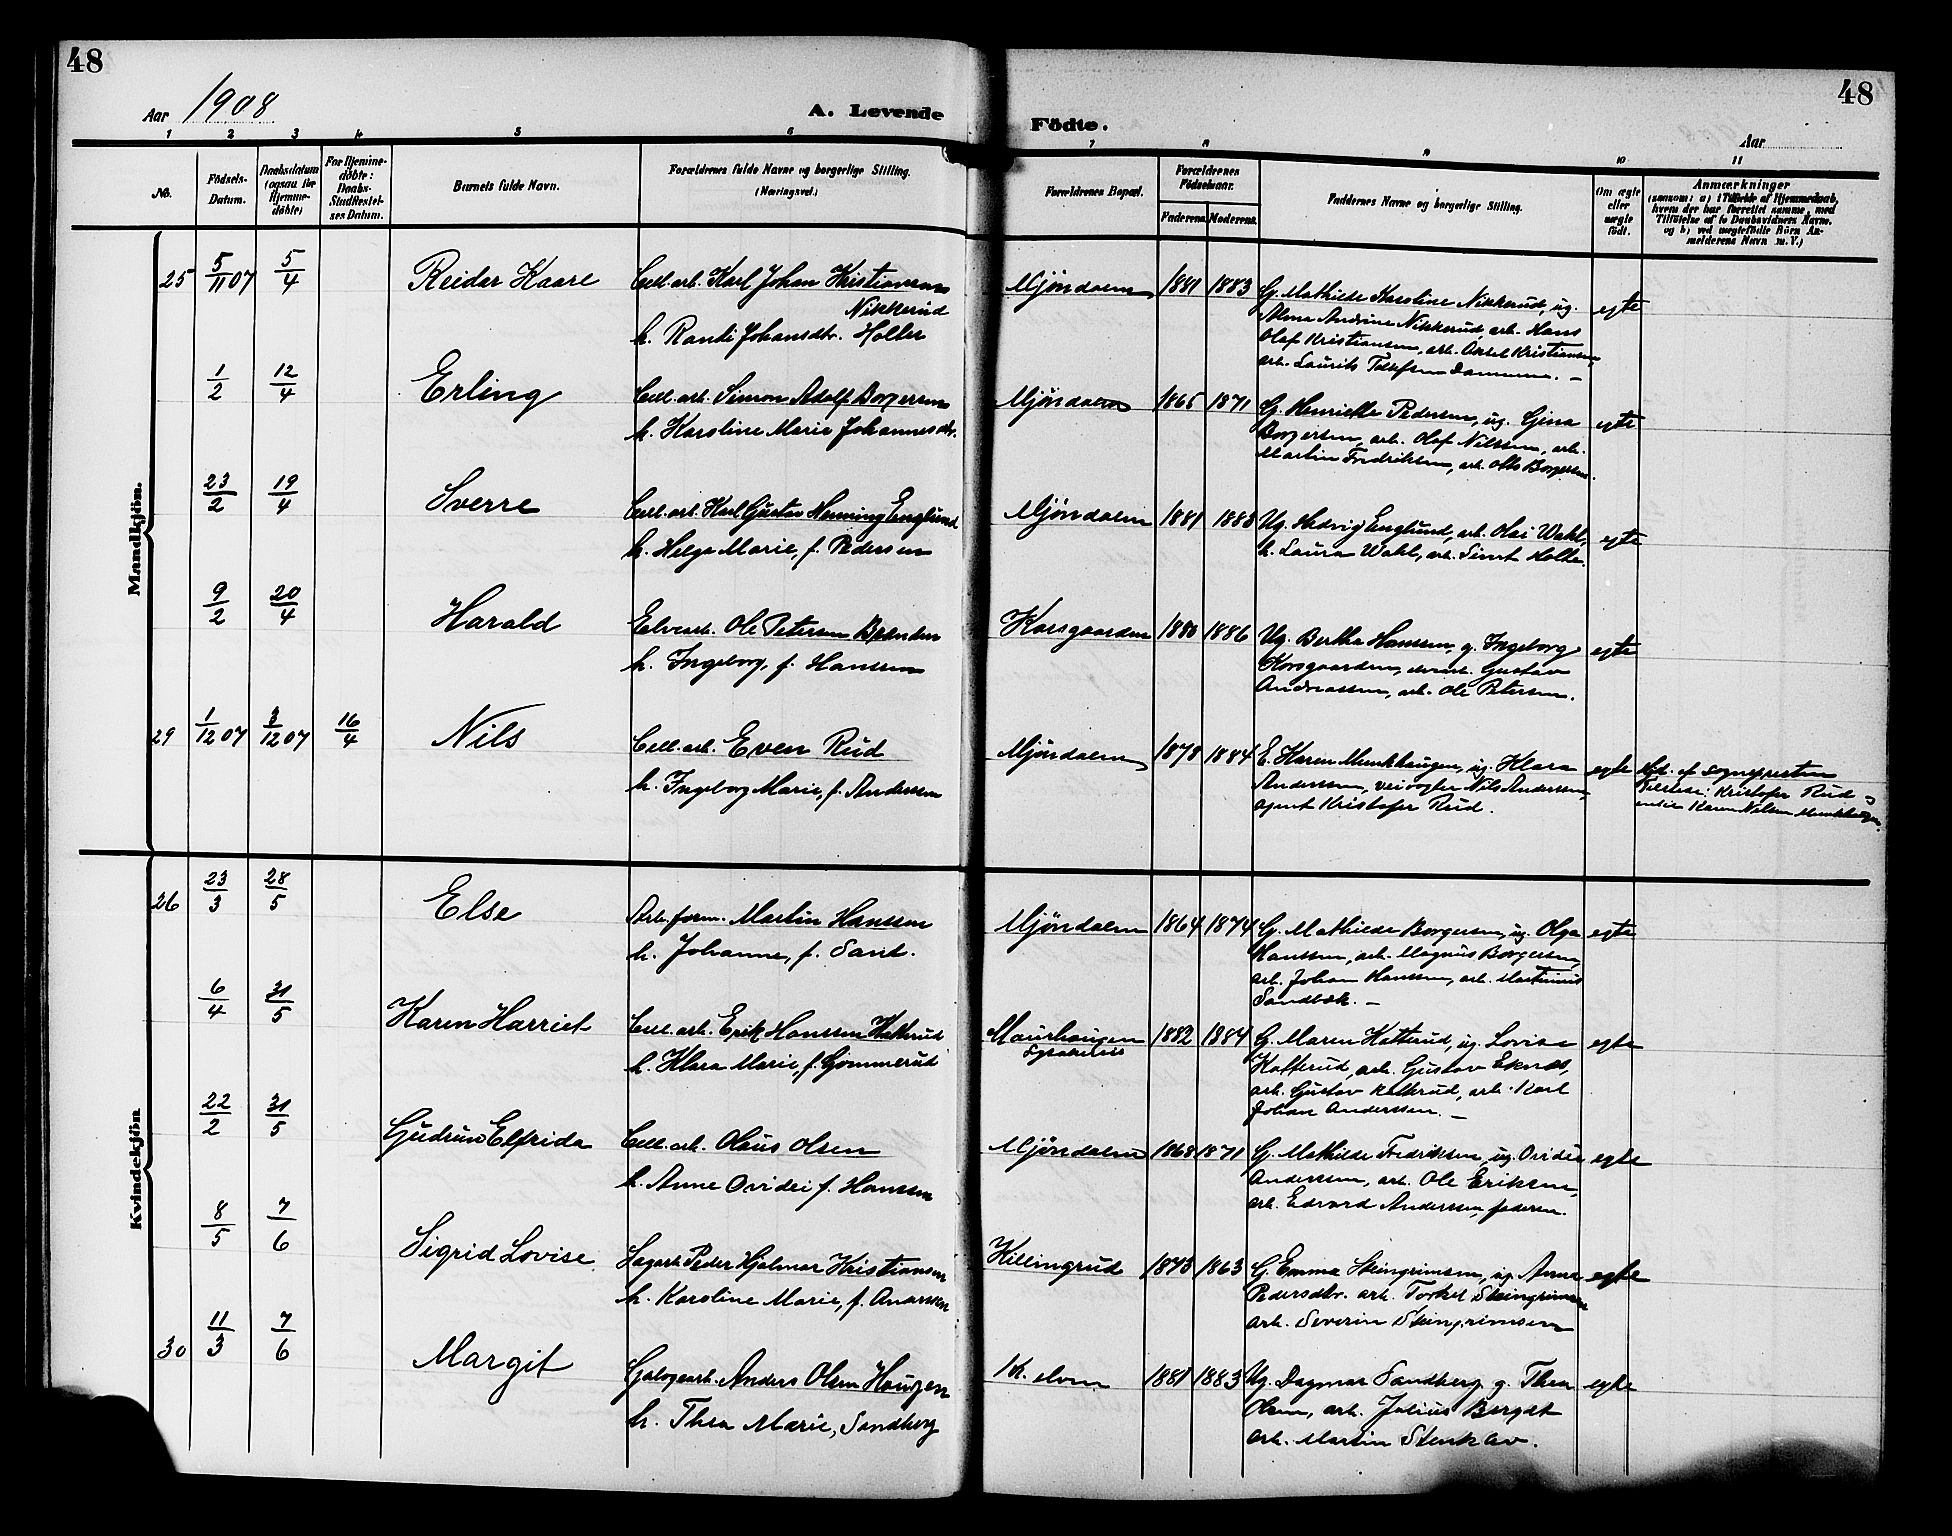 48
48
Aar 1908
A. Levende
Födte.
Aar
1 2 3 4 5 6 7 8 9 10 11
No.
Födsels-
Datum.
Daabsdatum
(ogsaa for
Hjemme-
döbte)
For Hjemme-
döbte:
Daabs-
Stadfæstel-
ses Datum.
Barnets fulde Navn.
Forældrenes fulde Navne og borgerlige Stilling.
(Næringsvei.)
Forældrenes Bopæl.
Forældrenes
Födselsaar.
Faderens. Moderens.
Faddernes Navne og borgerlige Stilling.
Om ægte
eller
uægte
födt.
Anmærkninger
(saasom: a) i Tilfælde af Hjemmedaab,
hvem der har forrettet samme, med
Tilföielse af to Daabsvidners Navne.
og b) ved uægtefödte Börn An-
melderens Navn m. V.)
Mandkjön.
25 5/11 07 5/4 Reidar Kaare
Cell.arb. Karl Johan Kristiansen
Nikkerud
h. Randi Johansdtr. Holler
Mjöndalen 1881 1883
G. Mathilde Karoline Nikkerud, ug.
Alma Andrine Nikkerud, arb. Hans
Olaf Kristiansen, arb. Oskel Kristiansen,
arb. Laurits
egte
1/2 12/4 Erling
Cell.arb. Simon Adolf Borgersen
h. Karoline Marie Johannesdtr.
Mjöndalen 1865 1871
G. Henriette Pedersen, ug. Gina
Borgersen, arb. Olaf Nilssen, arb.
Martin Fredriksen, arb. Otto Borgersen.
egte
23/2 19/4 Sverre
Cell.arb. Karl Gustav Henning Englund
h. Helga Marie, f. Pedersen
Mjöndalen 1881 1883
Ug. Hedvig Englund, arb. Olai Wahl,
h. Laura Wahl, arb. Holte.
egte
9/2 20/4 Harald
Elvearb. Ole Petersen Brenden
h. Ingeborg, f. Hanssen
Korsgaarden 1880 1886
Ug. Bertha Hanssen, g. Ingeborg
Korsgaarden, Gustav
Andreassen, arb. Ole Petersen.
egte
29 1/12 07 3/12 07 16/4 Nils
Cell.arb. Even Rud
h. Ingeborg Marie, f. Anderssen
Mjöndalen 1878 1884
E. Karen Munkhaugen, ug. Klara
Anderssen, veivogter Nils Anderssen,
agent Kristofer Rud.
egte
Hjd. af sognepresten
Kristofer Rud og
enke Karen Nilsen Munkhaugen.
Kvindekjön
26 23/3 28/5 Else
Arb.form. Martin Hanssen
h. Johanne, f. Sand.
Mjöndalen 1864 1874
G. Mathilde Borgersen, ug. Olga
Hanssen, arb. Magnus Borgersen,
arb. Johan Hanssen, arb. Martinius
Sandbæk. —
egte
6/4 31/5 Karen Harriet
Cell.arb. Erik Hanssen Katterud
h. Klara Marie, f. Gommerud
Maurhaugen 1882 1884
G. Maren Katterud, ug. Lovise
Katterud, arb. Gustav Eknæs,
arb. Gustav Katterud, arb. Karl
Johan Anderssen. —
egte
22/2 31/5 Gudrun Elfrida
Cell.arb. Olaus Olsen
h. Anne Ovidei f. Hanssen
Mjöndalen 1868 1871
G. Mathilde Fredriksen, ug. Ovidia
Anderssen, arb. Ole Eriksen,
arb. Edvard Anderssen, faderen.
egte
8/5 7/6 Sigrid Lovise
Sagarb. Peder Hjalmar Kristiansen
h. Karoline Marie, f.
Killingrud 1873 1863
G. Emma Steingrimsen, ug. Anna
Pedersdtr. arb. Torkel Steingrimsen
arb. Severin Steingrimsen
egte
30 11/3 7/6 Margit
Anders Olsen Haugen
h. Thea Marie, Sandberg
1881 1883
Ug. Dagmar Sandberg, g. Thea
Olsen, arb. Julius
arb. Martin
egte